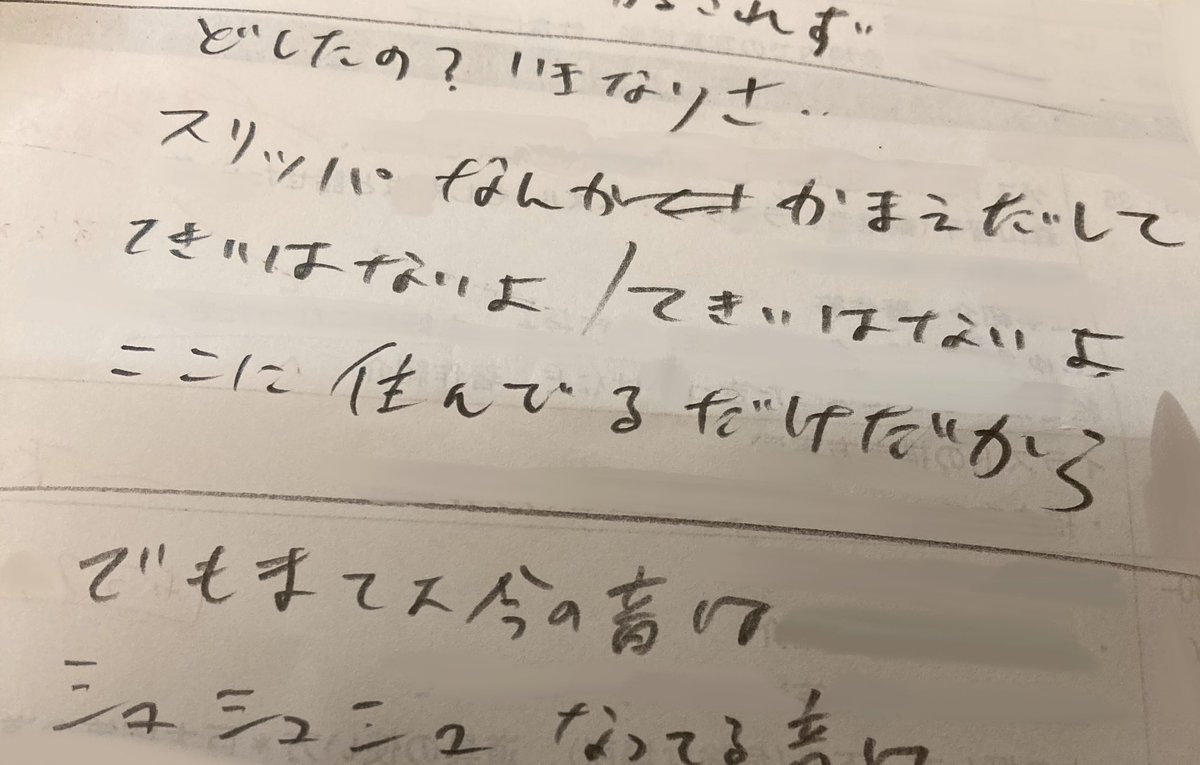 されず
どしたの？いきなりさ‥
スリッパなんか かまえだして
てきいはないよ/てきいはないよ
ここに住んでるだけだから
でもまてよ今の音は
シュシュシュなってる音は